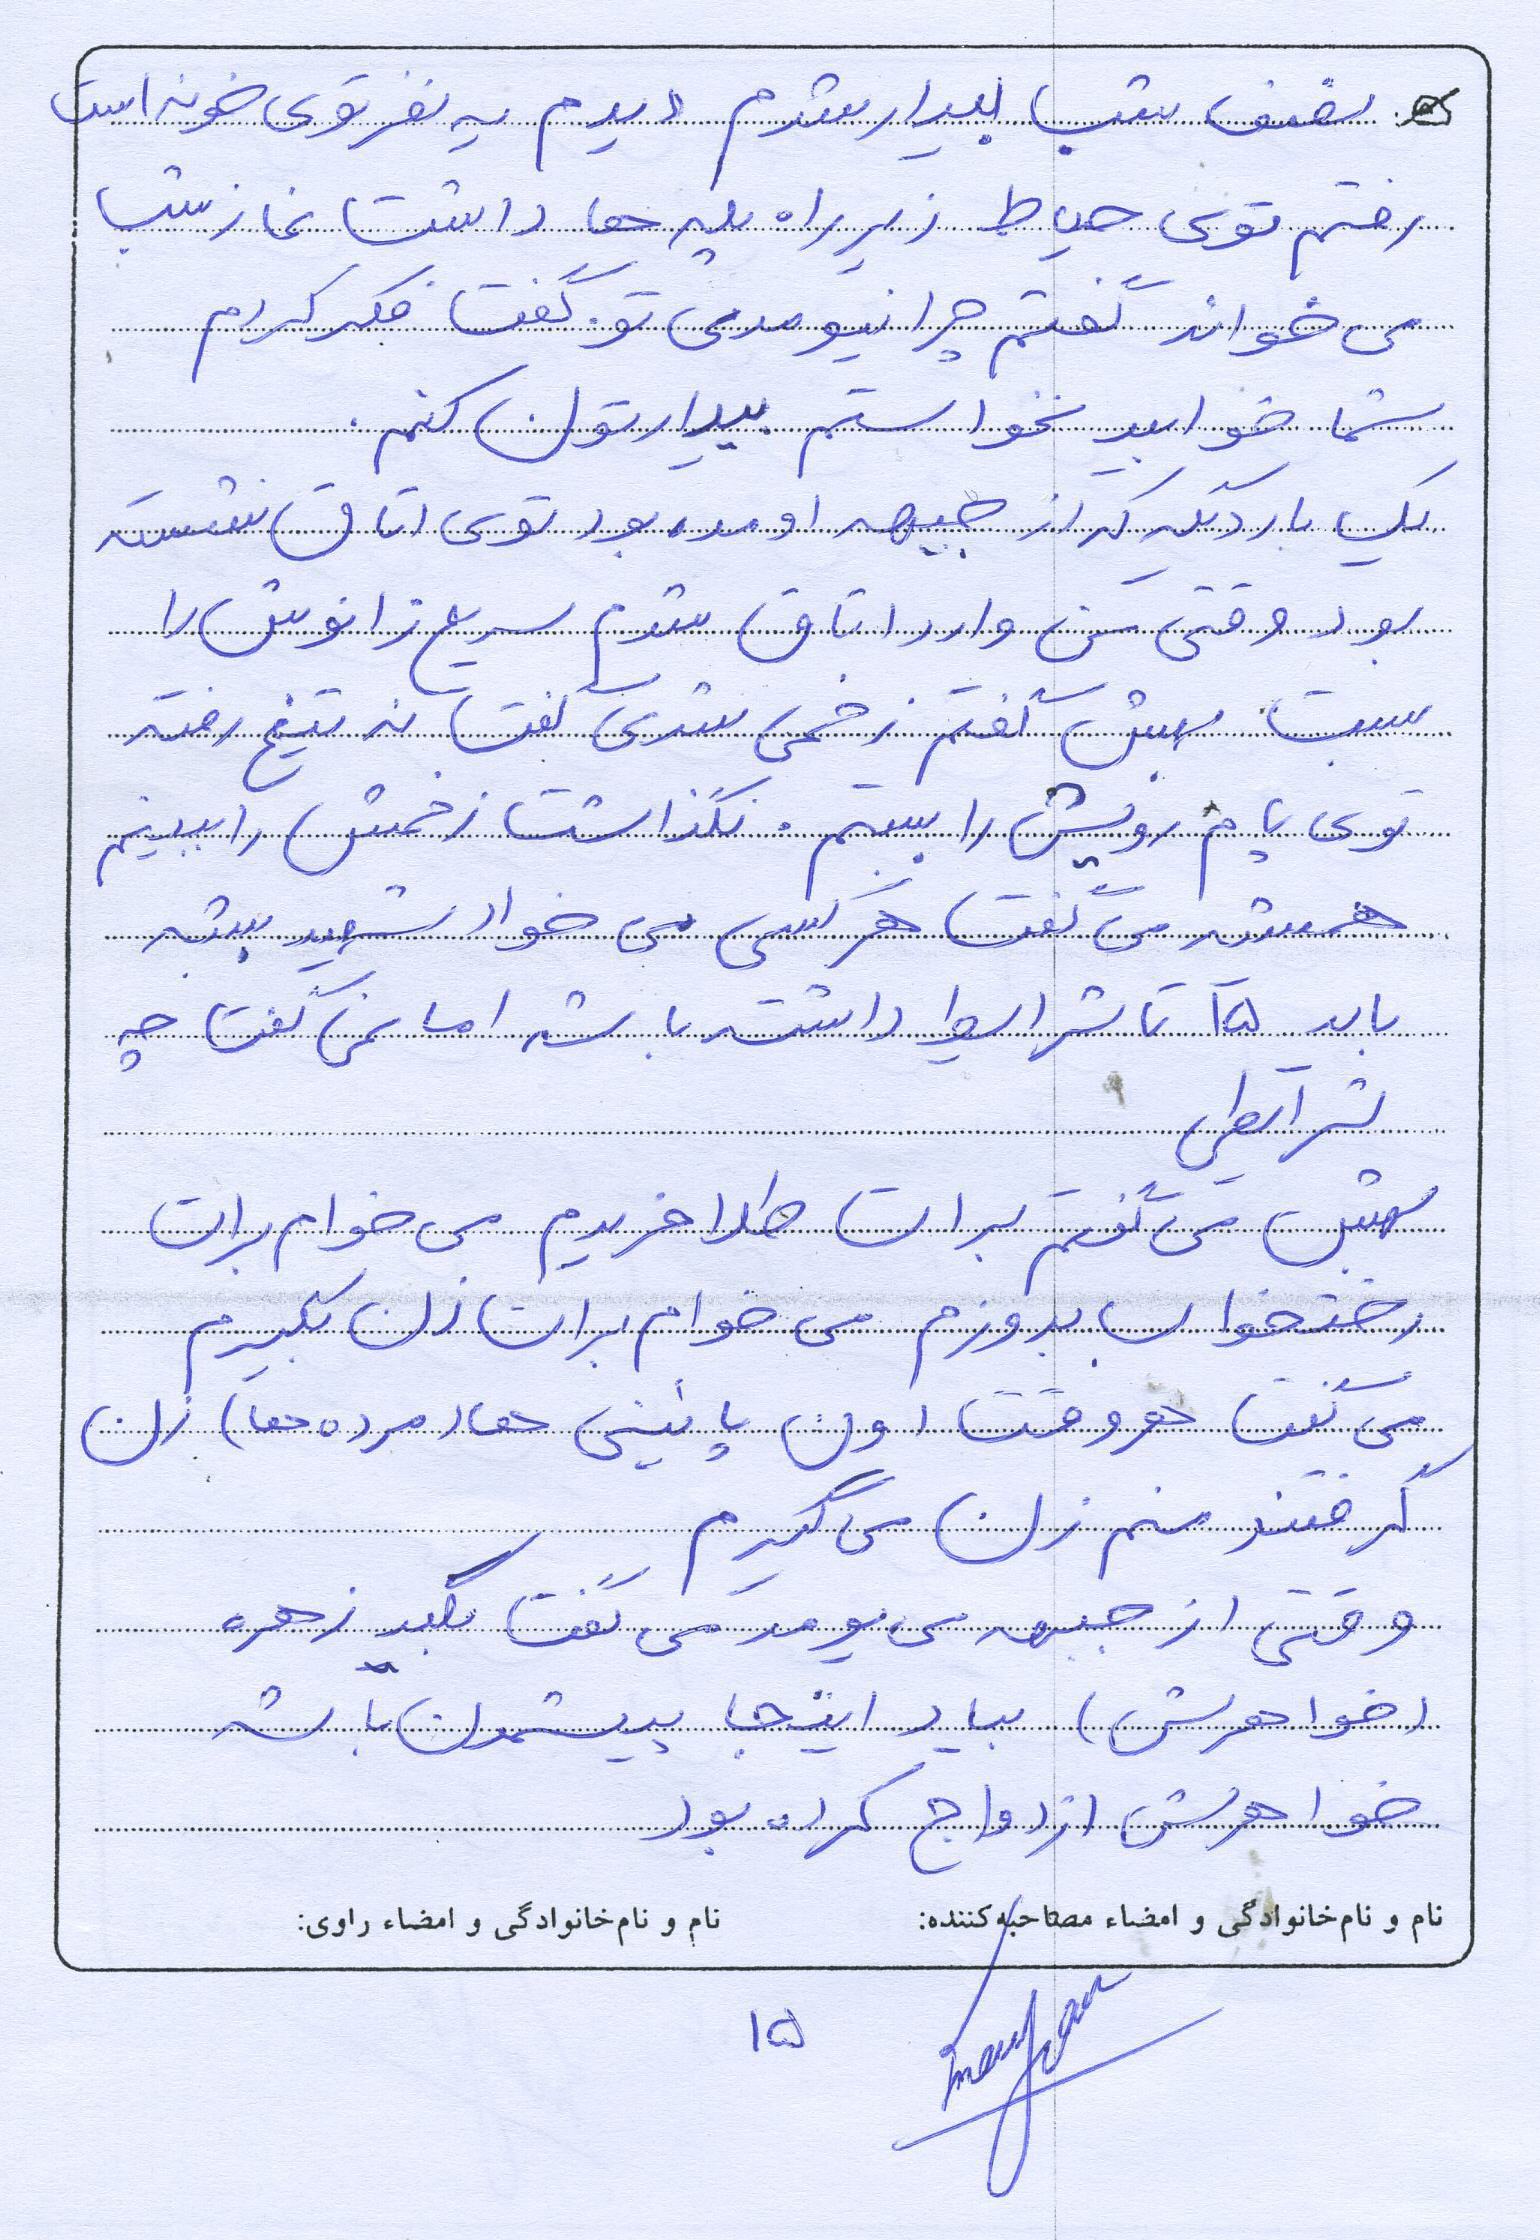 نصف شب بیدار شدم دیدم یه نفر توی خونه است
رفتم توی حیاط زیر راه پله ها داشت نماز شب
می خواند گفتم چرا نیومدی تو. گفت فکر کردم
شما خوابید نخواستم بیدارتون کنم.
یک بار دیگه که از جبهه اومده بود توی اتاق نشسته
بود وقتی من وارد اتاق شدم سریع زانوش را
بست بهش گفتم زخمی شدی گفت نه تیغ رفته
توی پام رویش را بستم. نگذاشت زخمش را ببینم
همشه می گفت هر کسی می خواد شهید بشه
باید ۱۵ تا شرایط داشته باشه اما نمی گفت چه
شرایطی
بهش می گفتم برات طلا خریدم می خوام برات
رختخواب بدوزم می خوام برات زن بگیرم
می گفت هر وقت اون پائینی ها (مرده ها) زن
گرفتند منم زن می گیرم
وقتی از جبهه می یومد می گفت بگید زهره
(خواهرش) بیاد اینجا پیشمون باشه
خواهرش ازدواج کرده بود
نام و نام‌خانوادگی و امضاء مصاحبه‌کننده: نام و نام‌خانوادگی و امضاء راوی:
۱۵